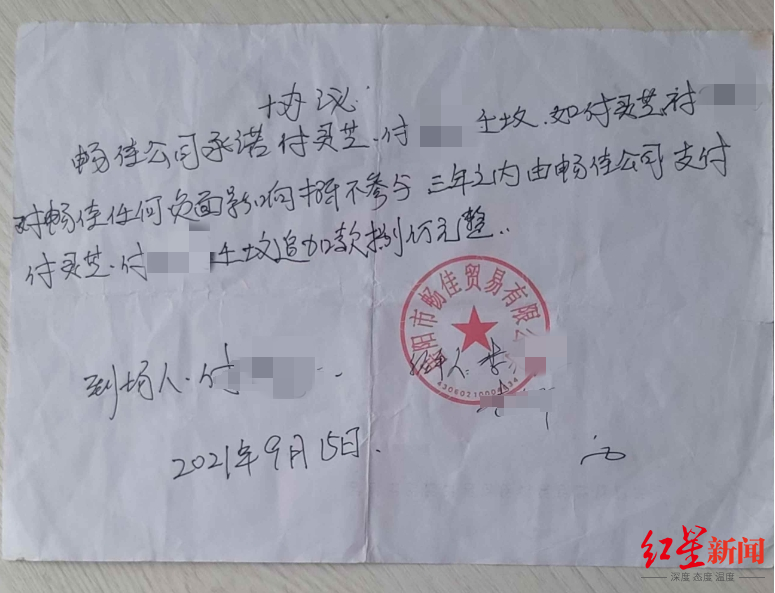 协议
畅佳公司承诺付买芝.付 土坟.如付买芝.付
对畅佳任何负面影响 不参与 三年之内由畅佳公司支付
付买芝.付 土坟追加款捌仟元整..
阳市畅佳贸易有限公
4306021000
到场人.付
经手人:李
2021年9月15日.
红星新闻
深度 态度 温度